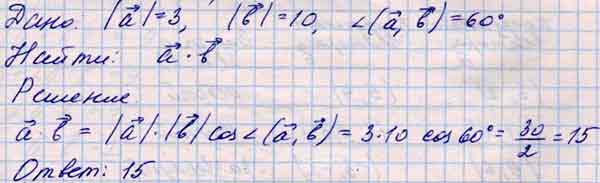 Дано. |a⃗|=3, |b⃗|=10, ∠(a⃗, b⃗)=60°
Найти: a⃗ · b⃗
Решение.
a⃗ · b⃗ = |a⃗|·|b⃗| cos∠(a⃗, b⃗) = 3·10 cos60° = 30/2 = 15
Ответ: 15